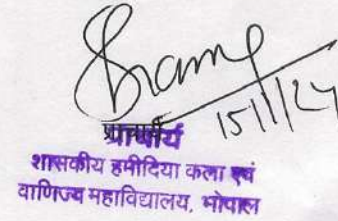 15/1/24
प्राचार्य
शासकीय हमीदिया कला एवं
वाणिज्य महाविद्यालय, भोपाल